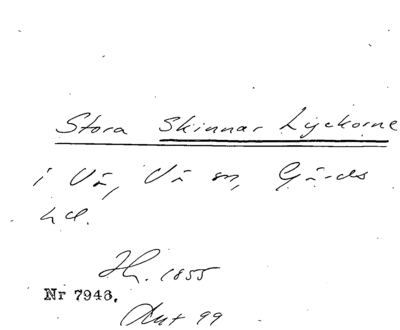 Stora Skinnar Lyckorne
i Vä, Vä sn, Gärds
hd.
Hr. 1855
Nr 7946.
Akt 99